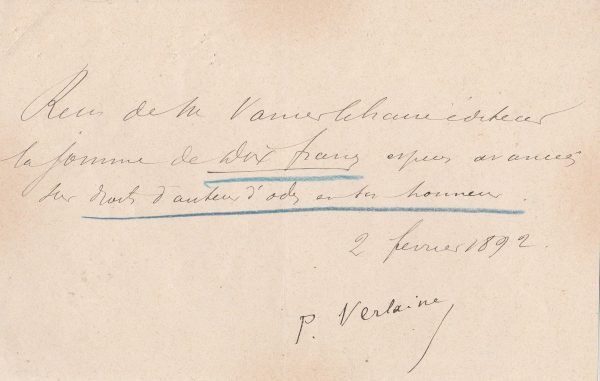 Reçu de M Vanier libraire éditeur
la somme de dix francs espèces avancées
sur droits d'auteur d'odes en son honneur.
2 février 1892.
P. Verlaine